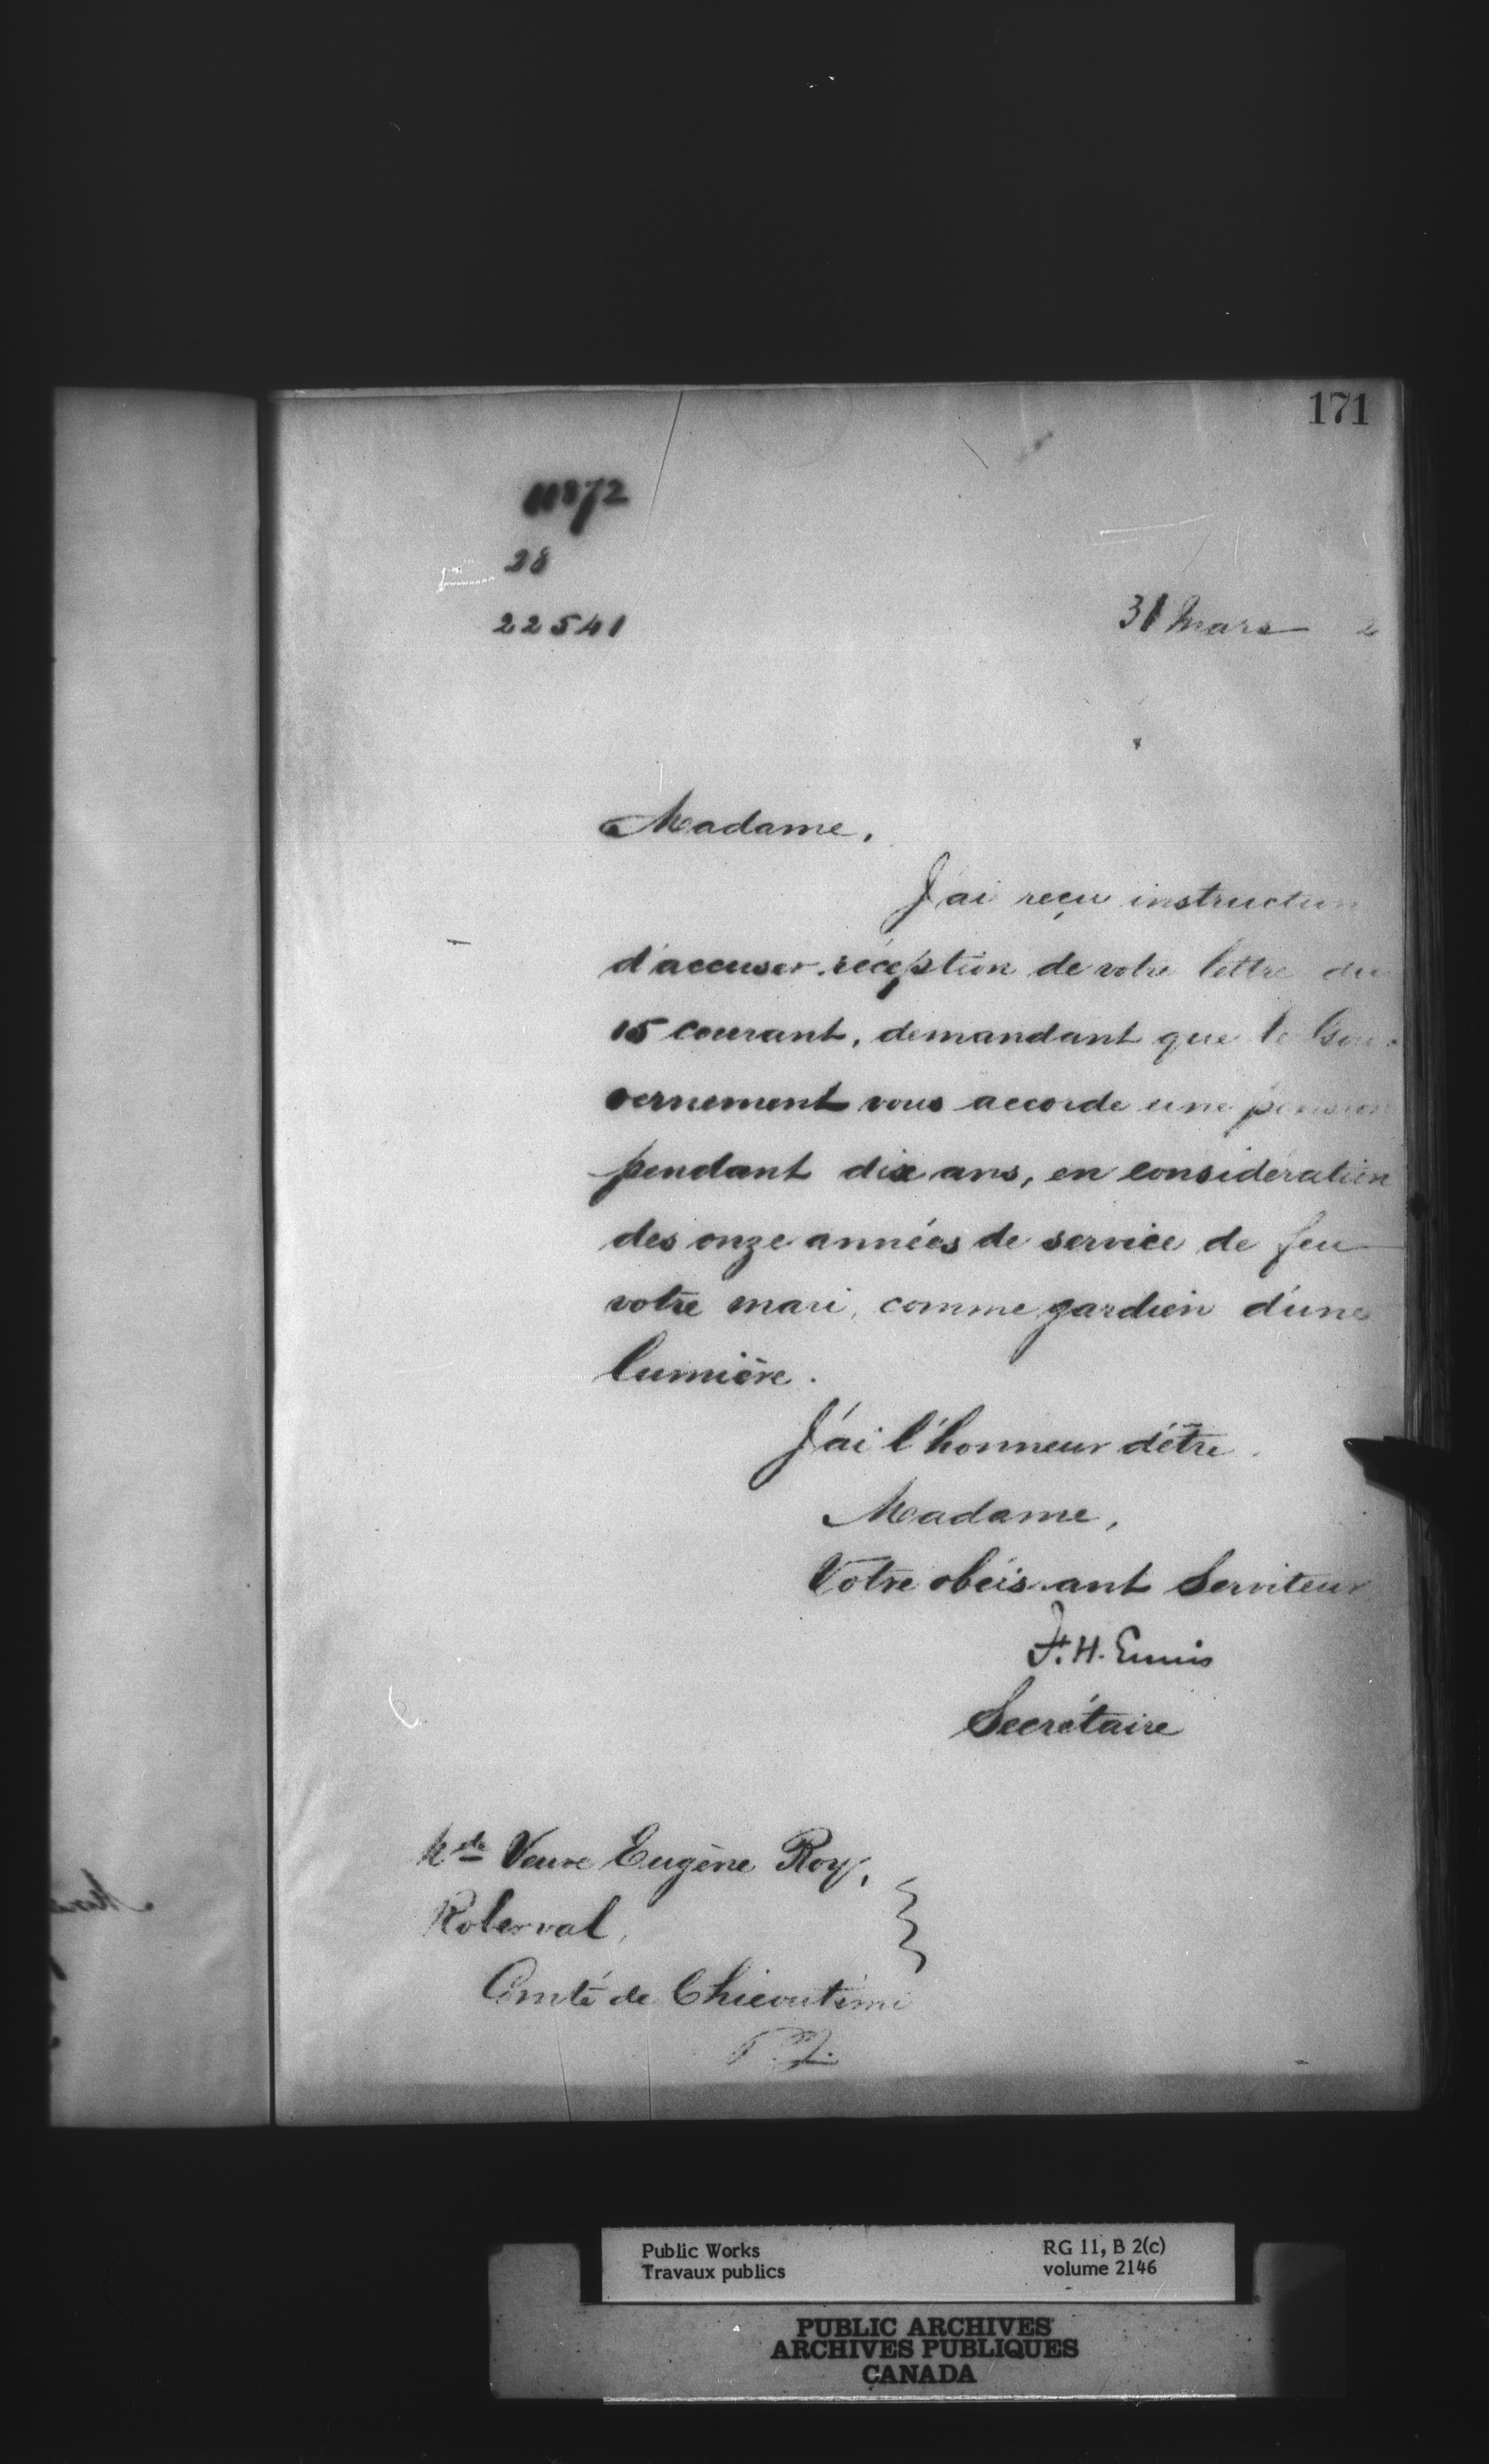 171
28
22541
31 Mars 2
Madame,
J'ai reçu instruction
d'accuser réception de votre lettre du
15 courant, demandant que le Gou-
vernement vous accorde une pension
pendant dix ans, en considération
des onze années de service de feu
votre mari, comme gardien d'une
lumière.
J'ai l'honneur d'être
Madame,
Votre obéissant Serviteur
F. H. Ennis
Secrétaire
Veuve Eugène Roy,
Roberval,
Comté de Chicoutimi
P. Q.
Public Works
Travaux publics
RG 11, B 2(c)
volume 2146
PUBLIC ARCHIVES
ARCHIVES PUBLIQUES
CANADA